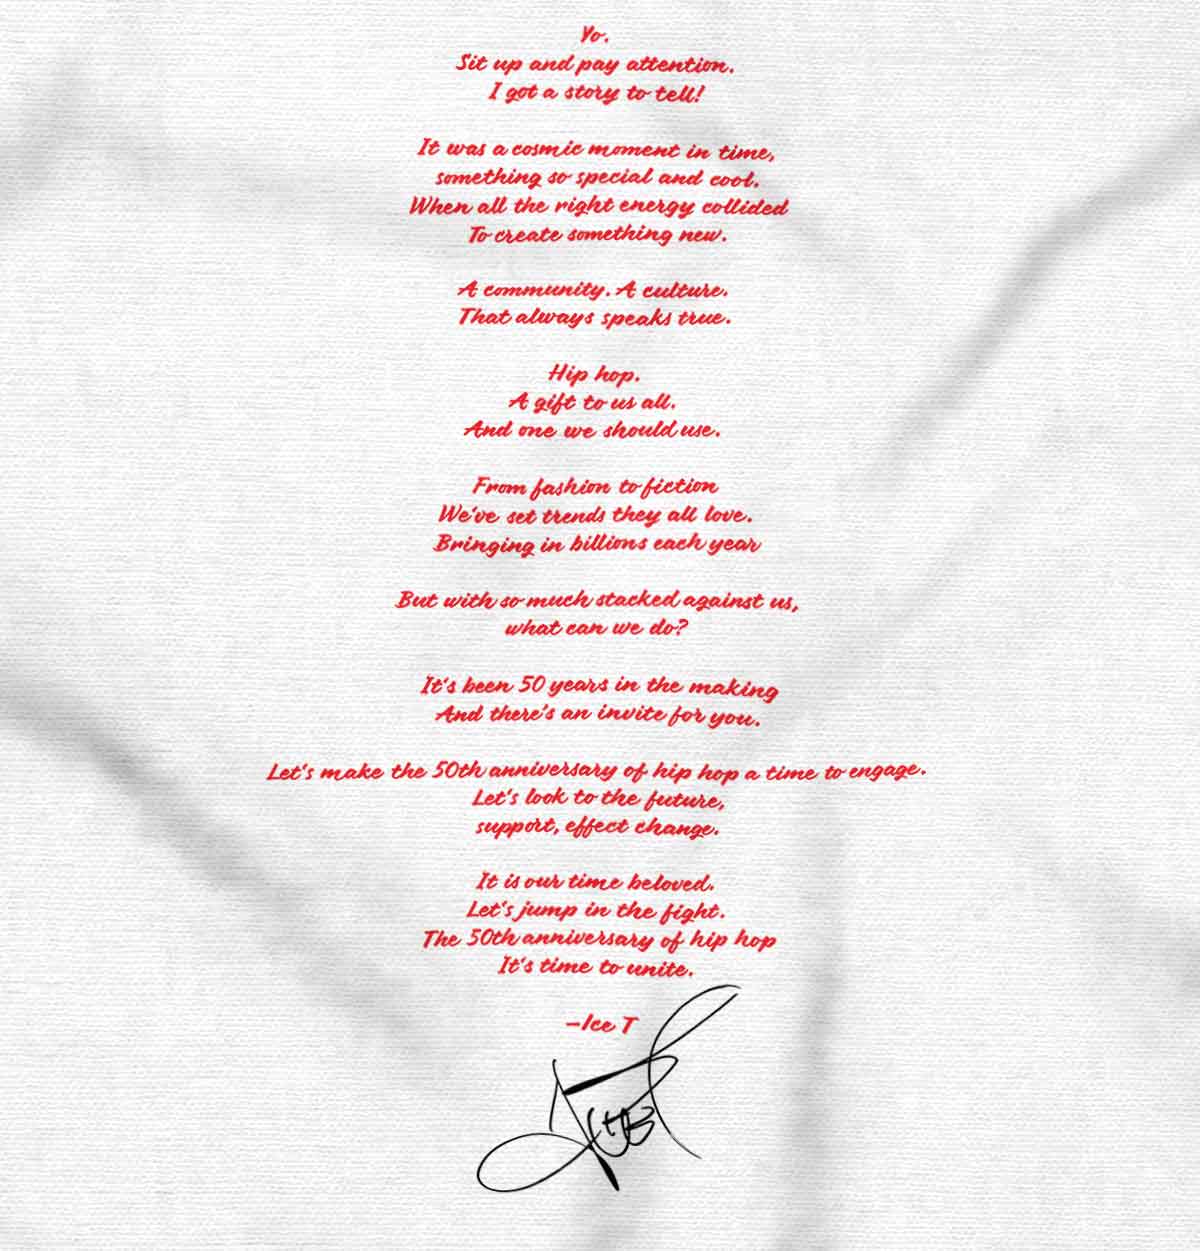 Yo.
Sit up and pay attention.
I got a story to tell!
It was a cosmic moment in time,
something so special and cool.
When all the right energy collided
To create something new.
A community. A culture.
That always speaks true.
Hip hop.
A gift to us all.
And one we should use.
From fashion to fiction
We've set trends they all love.
Bringing in billions each year
But with so much stacked against us,
what can we do?
It's been 50 years in the making
And there's an invite for you.
Let's make the 50th anniversary of hip hop a time to engage.
Let's look to the future,
support, effect change.
It is our time beloved.
Let's jump in the fight.
The 50th anniversary of hip hop
It's time to unite.
–Ice T